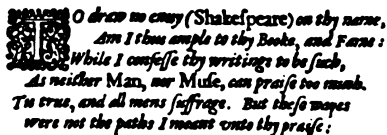 TO draw no envy (Shakeſpeare) on thy name,
Am I thus ample to thy Booke, and Fame:
While I confeſſe thy writings to be ſuch,
As neither Man, nor Muſe, can praiſe too much.
Tis true, and all mens ſuffrage. But theſe wayes
were not the paths I meant vnto thy praiſe: